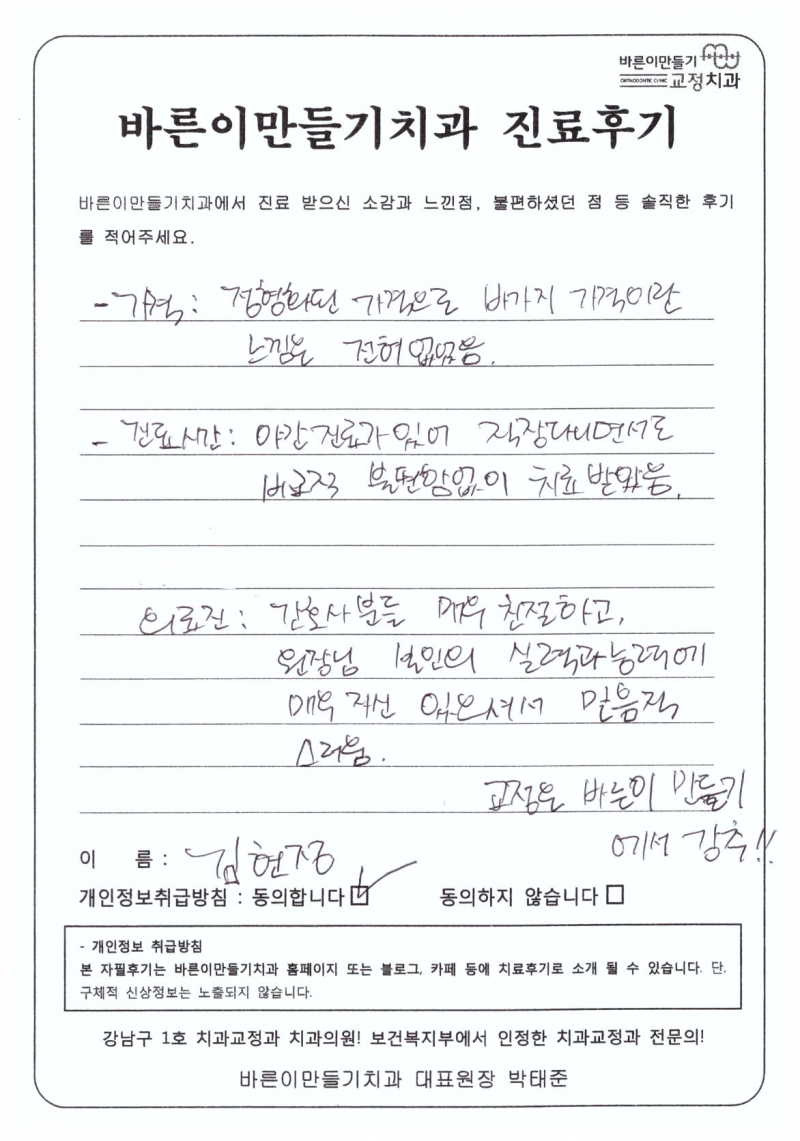 바른이만들기
ORTHODONTIC CLINIC 교정치과
바른이만들기치과 진료후기
바른이만들기치과에서 진료 받으신 소감과 느낀점, 불편하셨던 점 등 솔직한 후기
를 적어주세요.
- 가격: 정형화된 가격으로 바가지 가격이란
느낌은 전혀 없었음.
- 진료시간: 야간진료가 있어 직장다니면서도
비교적 불편함없이 치료받았음.
의료진: 간호사분들 매우 친절하고,
원장님 본인의 실력과 능력에
매우 자신 있으셔서 믿음직
스러움.
교정은 바른이 만들기
에서 강추!!
이 름 : 김현정
개인정보취급방침 : 동의합니다 ☑ 동의하지 않습니다 □
- 개인정보 취급방침
본 자필후기는 바른이만들기치과 홈페이지 또는 블로그, 카페 등에 치료후기로 소개 될 수 있습니다. 단,
구체적 신상정보는 노출되지 않습니다.
강남구 1호 치과교정과 치과의원! 보건복지부에서 인정한 치과교정과 전문의!
바른이만들기치과 대표원장 박태준